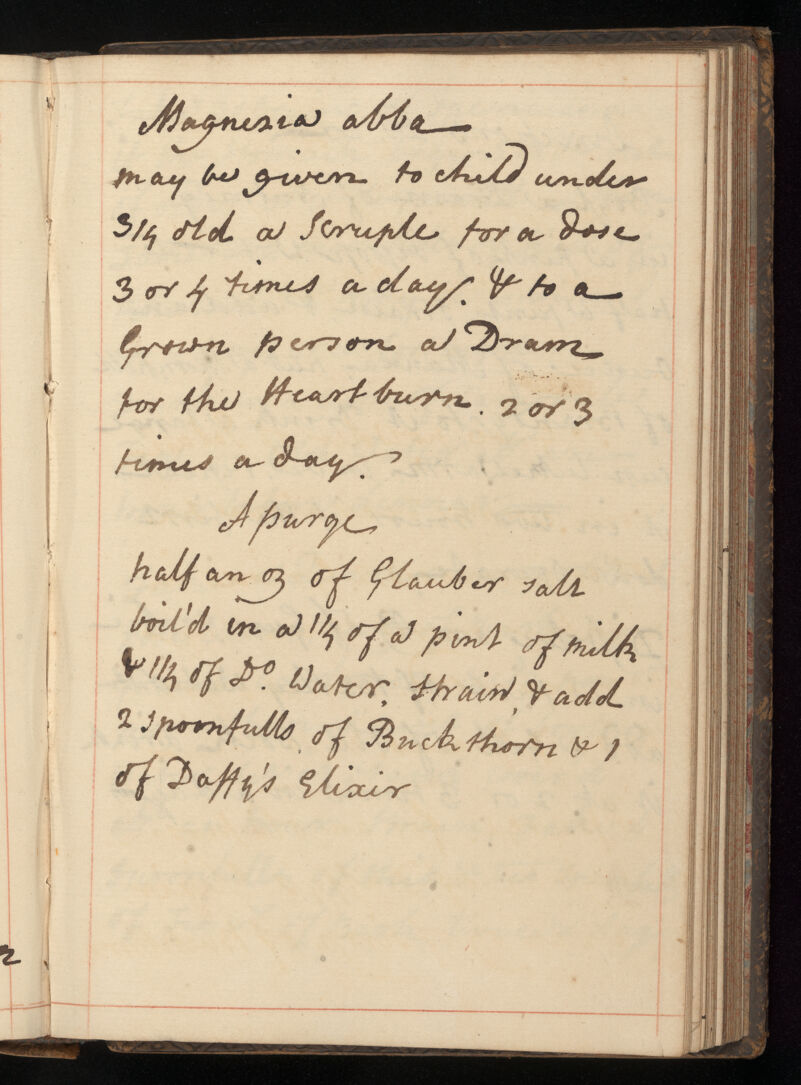 Magnesia abba
may be given to child under
3/4 old a Scruple for a dose
3 or 4 times a day. & to a
Grown person a Dram
for the Heartburn. 2 or 3
times a day.
A purge
half an oz of Glauber salt
boil'd in a 1/4 of a pint of milk
& 1/4 of Do. Water. strain, & add
2 spoonfulls of Buckthorn & 1
of Daffy's Elixir